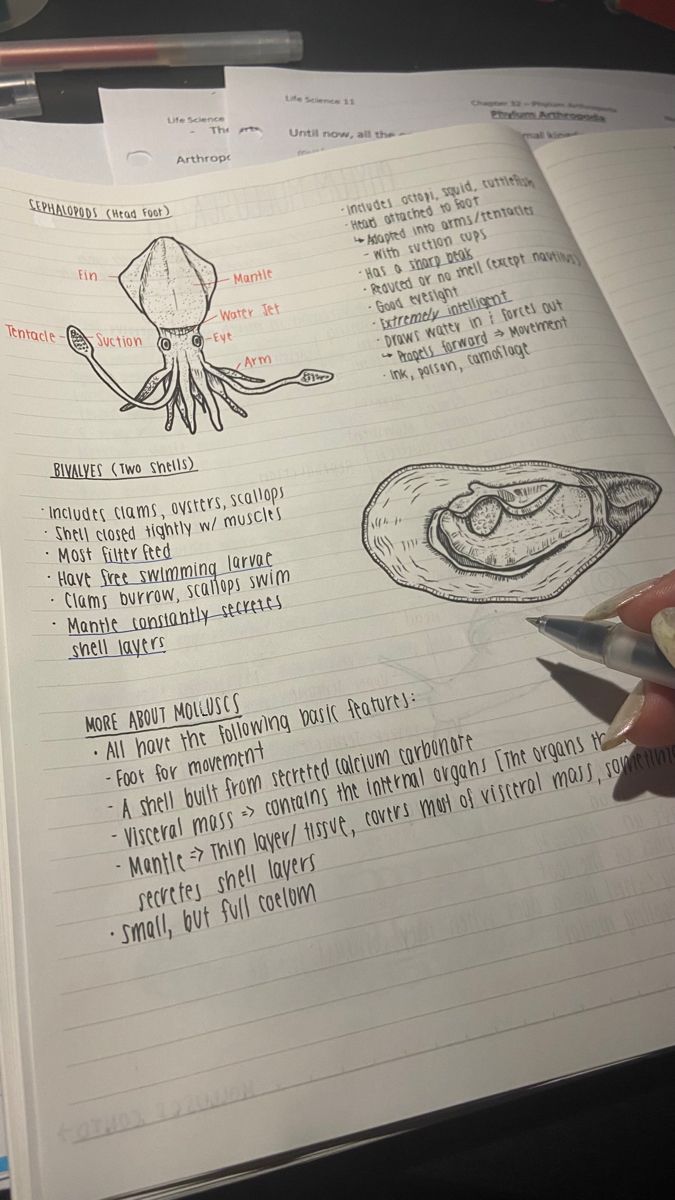 Life Science 11
Chapter 32 – Phylum Arthropoda
Phylum Arthropoda
Life Science
- The
Until now, all the
Arthropo
CEPHALOPODS (Head Foot)
Fin
Mantle
Water Jet
Tentacle
Suction
Eye
Arm
· Includes octopi, squid, cuttlefish
· Head attached to foot
↳ Adapted into arms/tentacles
- With suction cups
· Has a sharp beak
· Reduced or no shell (except nautilus)
· Good eyesight
· Extremely intelligent
· Draws water in & forces out
↳ Propels forward => Movement
· Ink, poison, camoflage
BIVALVES (Two Shells)
· Includes clams, oysters, scallops
· Shell closed tightly w/ muscles
· Most filter feed
· Have free swimming larvae
· Clams burrow, scallops swim
· Mantle constantly secretes
shell layers
MORE ABOUT MOLLUSCS
· All have the following basic features:
- Foot for movement
- A shell built from secreted calcium carbonate
- Visceral mass => contains the internal organs [The organs
- Mantle => Thin layer/ tissue, covers most of visceral mass, sometimes
secretes shell layers
· Small, but full coelom